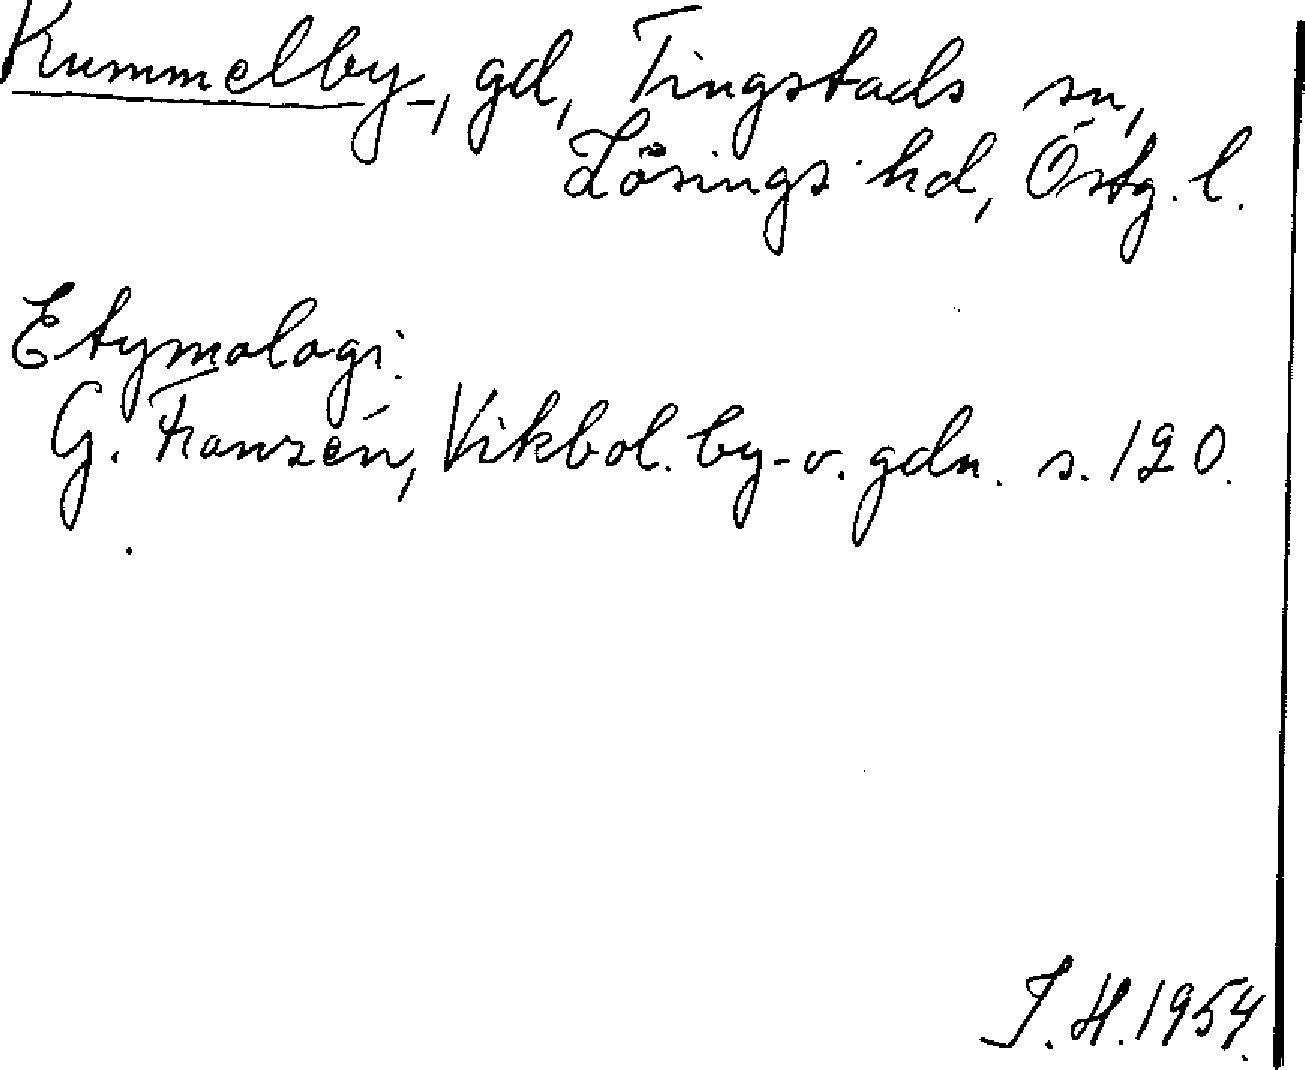 Rummelby, gd, Tingstads sn,
Lösings hd, Östg. l.
Etymologi:
G. Franzén, Vikbol. by- o. gdn. s. 120.
J. H. 1954.